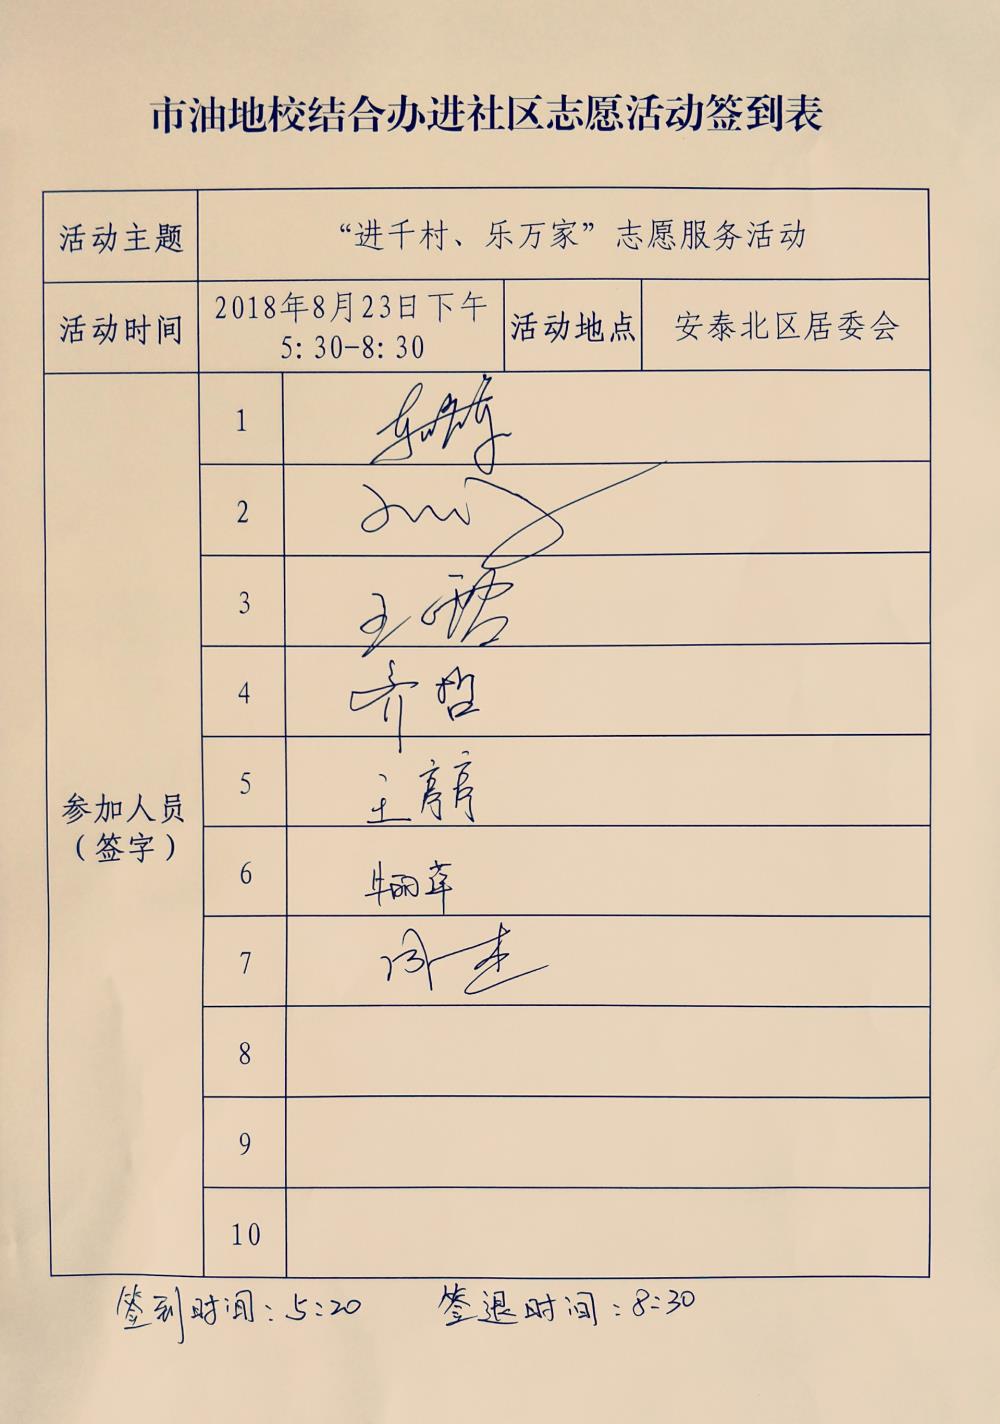 市油地校结合办进社区志愿活动签到表
活动主题
“进千村、乐万家”志愿服务活动
活动时间
2018年8月23日下午
5:30-8:30
活动地点
安泰北区居委会
参加人员
(签字)
1
2
3 王
4 齐哲
5 王亭亭
6 牛丽萍
7 闫杰
8
9
10
签到时间:5:20 签退时间:8:30